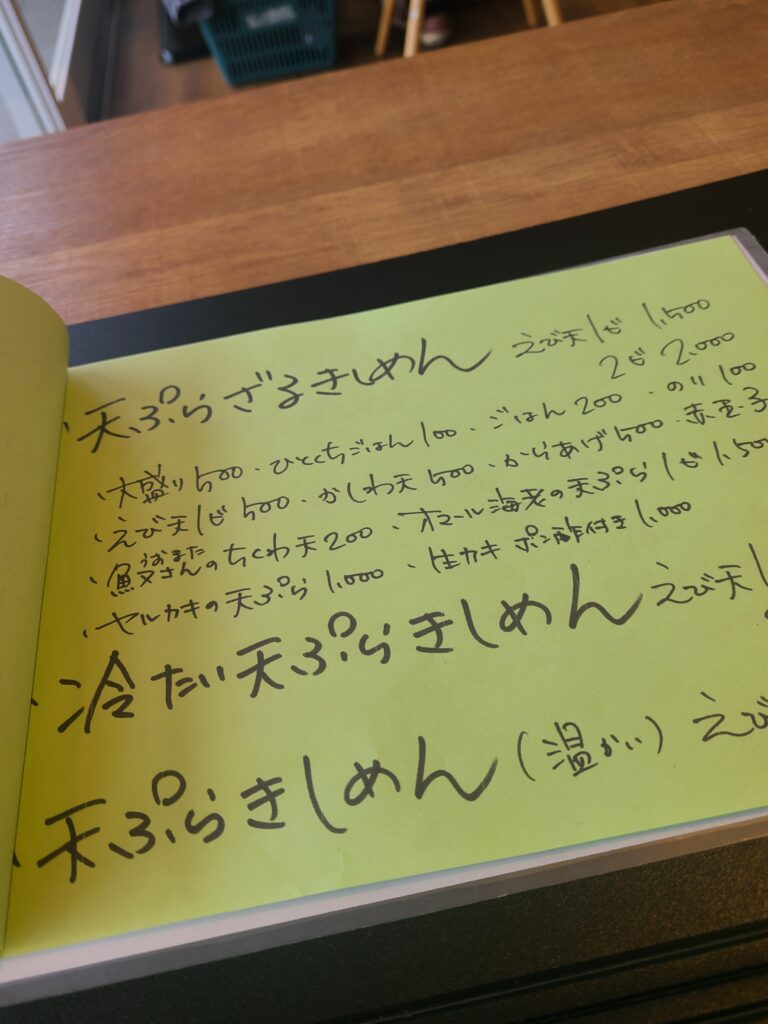 ・天ぷらざるきしめん えび天1ピ 1,500
2ピ 2,000
・大盛り500・ひとくちごはん100・ごはん200・のり100
・えび天1ピ500・かしわ天500・からあげ500・赤玉子
・さんのちくわ天200・オマール海老の天ぷら1ピ1,500
うおまた
・カキの天ぷら1,000・生カキ ポン酢付き1,000
・冷たい天ぷらきしめん えび天1
・天ぷらきしめん(温かい) えび